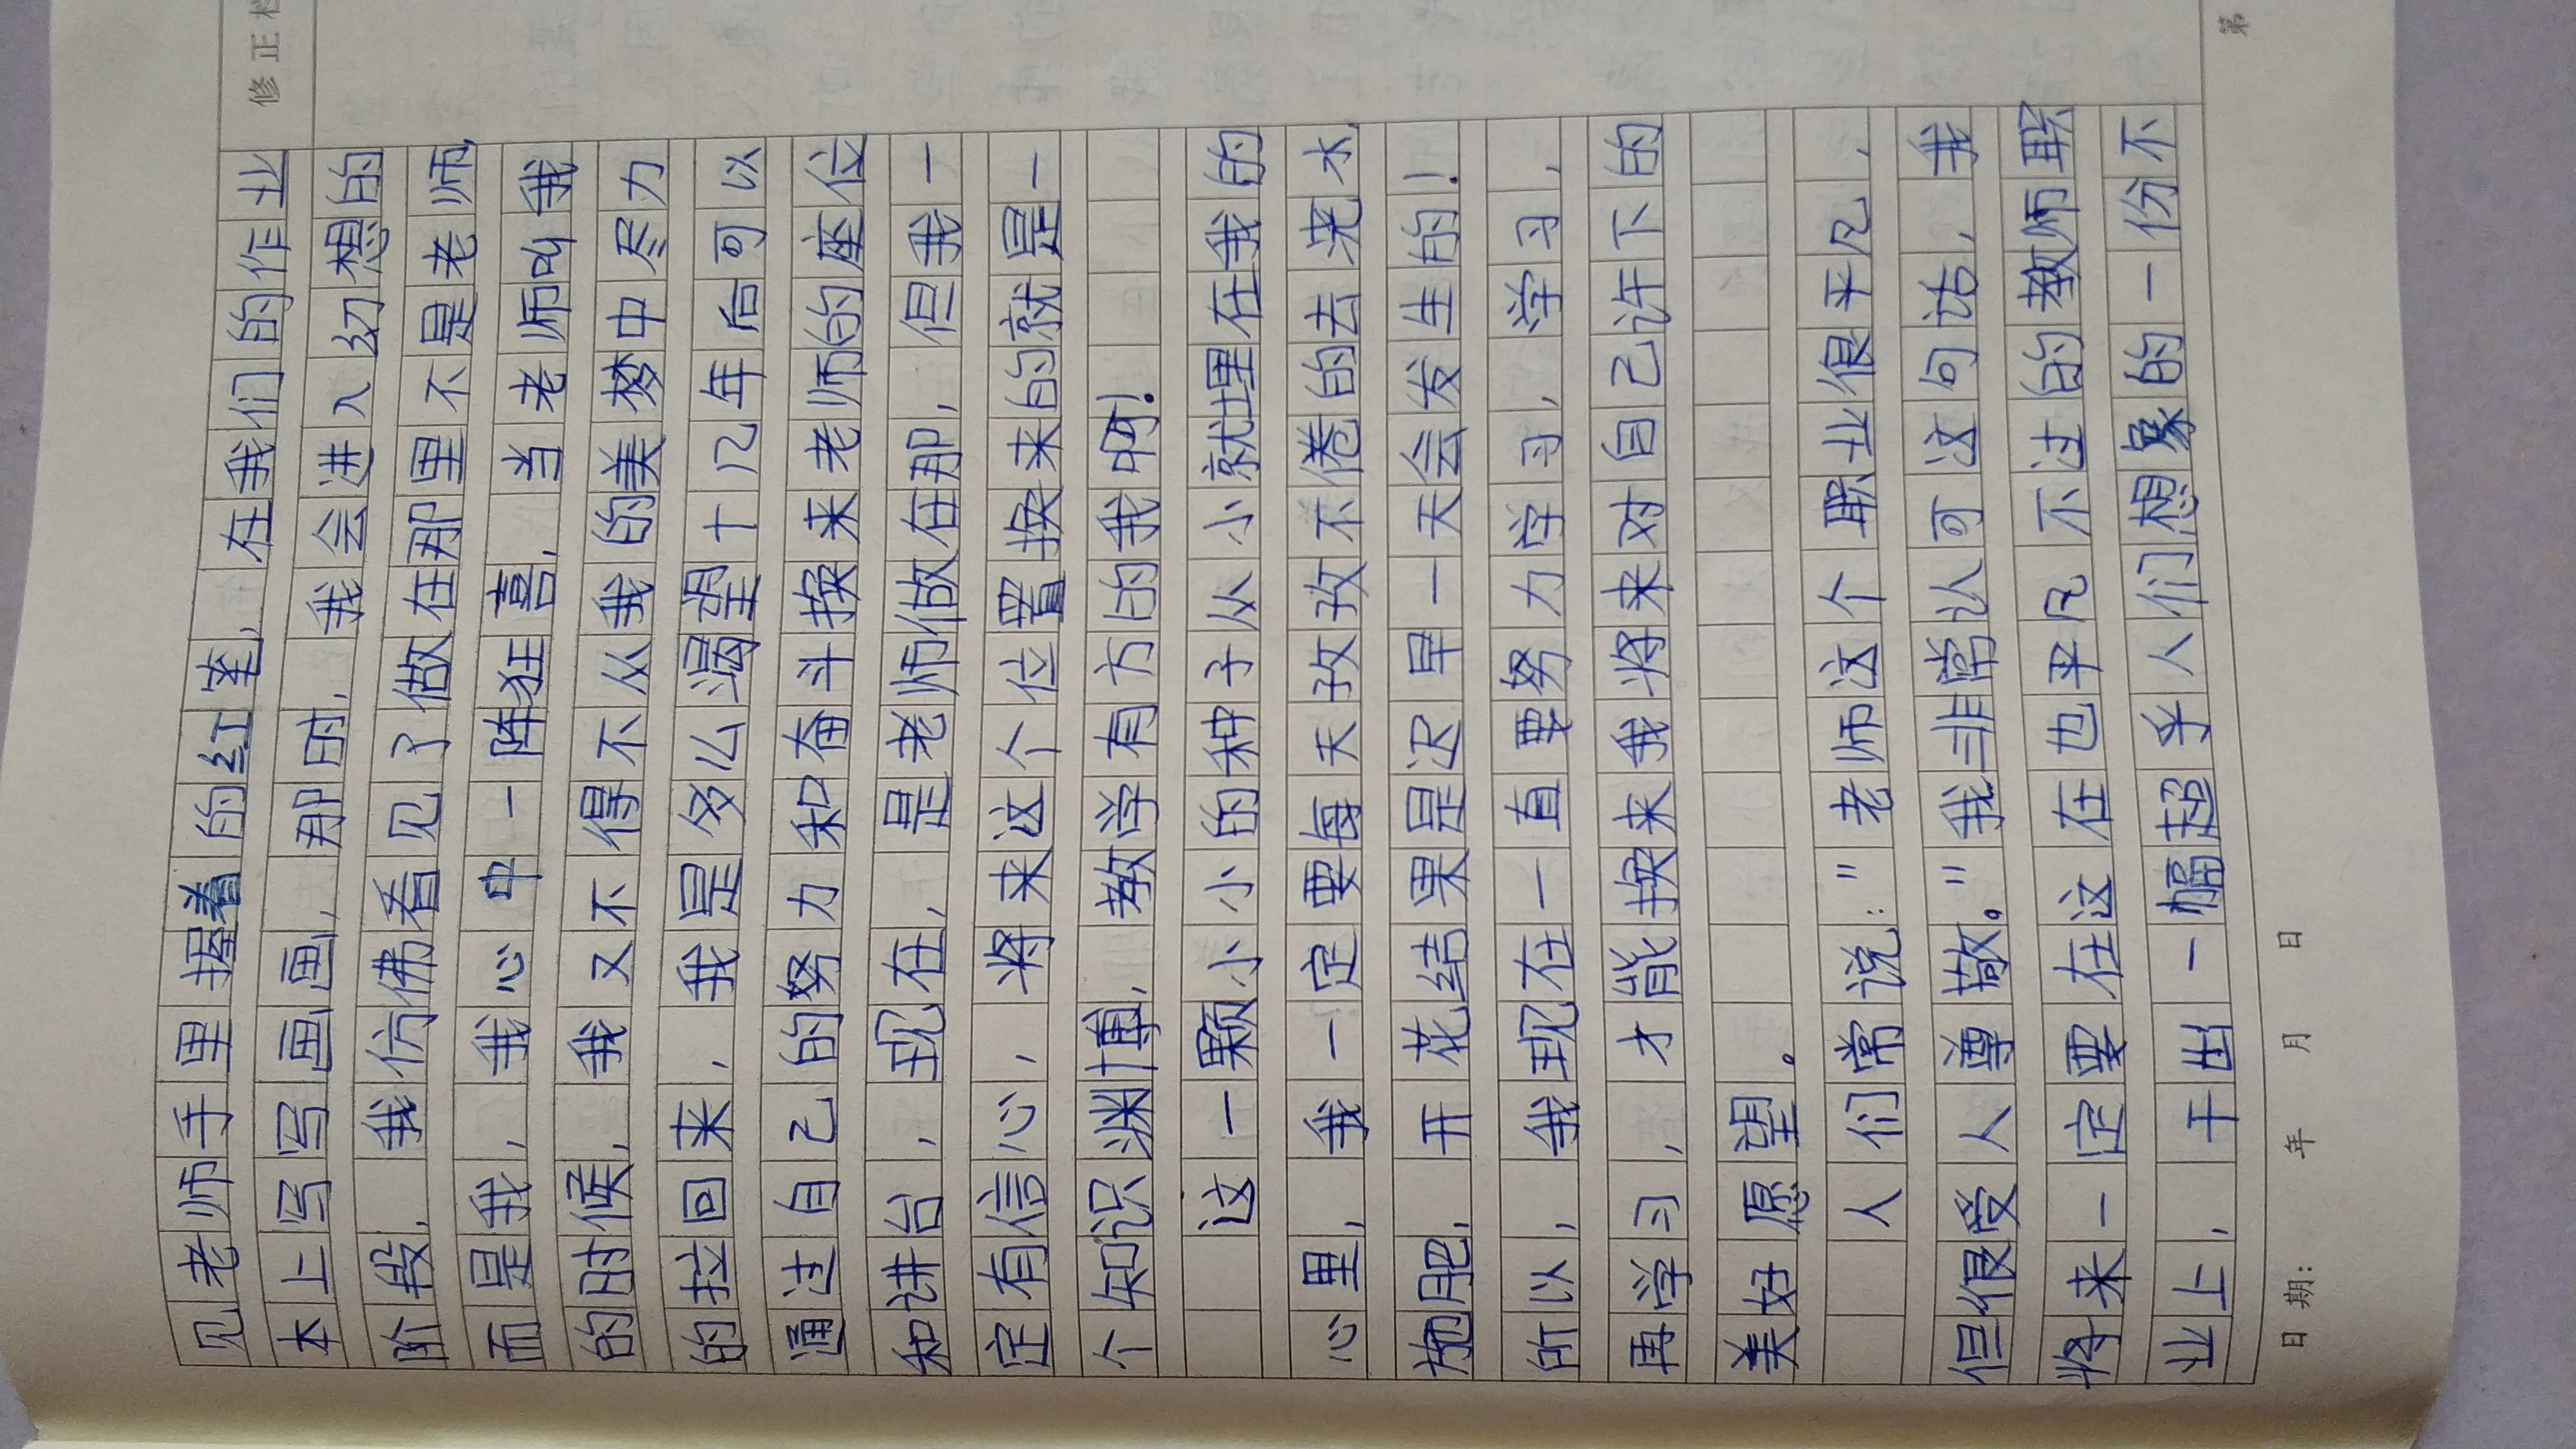 修正栏
见老师手里握着的红笔，在我们的作业
本上写写画画，那时，我会进入幻想的
阶段，我仿佛看见了做在那里不是老师，
而是我，我心中一阵狂喜，当老师叫我
的时候，我又不得不从我的美梦中尽力
的拉回来，我是多么渴望十几年后可以
通过自己的努力和奋斗换来老师的座位
和讲台，现在，是老师做在那，但我一
定有信心，将来这个位置换来的就是一
个知识渊博，教学有方的我啊！
这一颗小小的种子从小就埋在我的
心里，我一定要每天孜孜不倦的去浇水，
施肥，开花结果是迟早一天会发生的！
所以，我现在一直要努力学习，学习，
再学习，才能换来我将来对自己许下的
美好愿望。
人们常说：“老师这个职业很平凡，
但很受人尊敬。”我非常认可这句话，我
将来一定要在这在也平凡不过的教师职
业上，干出一幅超乎人们想象的一份不
日期： 年 月 日
第